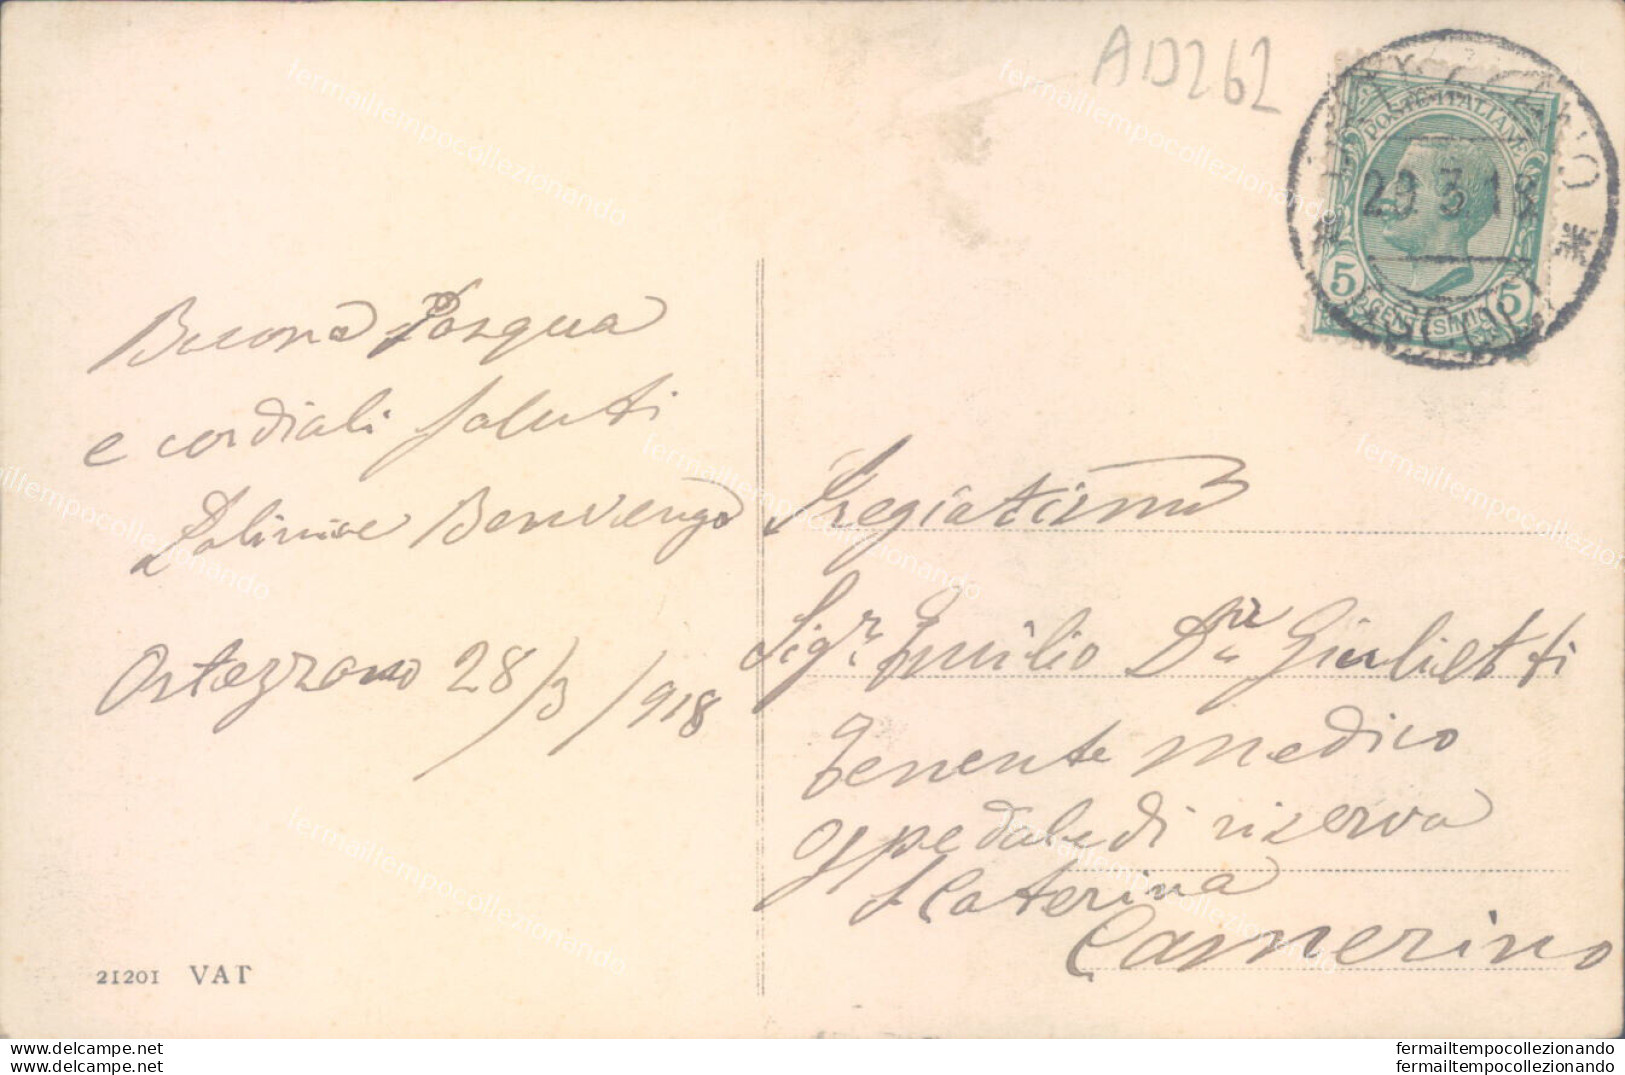 AD262
POSTE ITALIANE
29 3 18
5 CENTESIMI 5
Buona Pasqua
e cordiali saluti
Benvenga
Ortezzano 28/3/918
Pregiatissimo
Sigr. Emilio Dr. Giulietti
Tenente medico
Ospedale di riserva
S Caterina
Camerino
21201 VAT
www.delcampe.net
www.delcampe.net
fermailtempocollezionando
fermailtempocollezionando